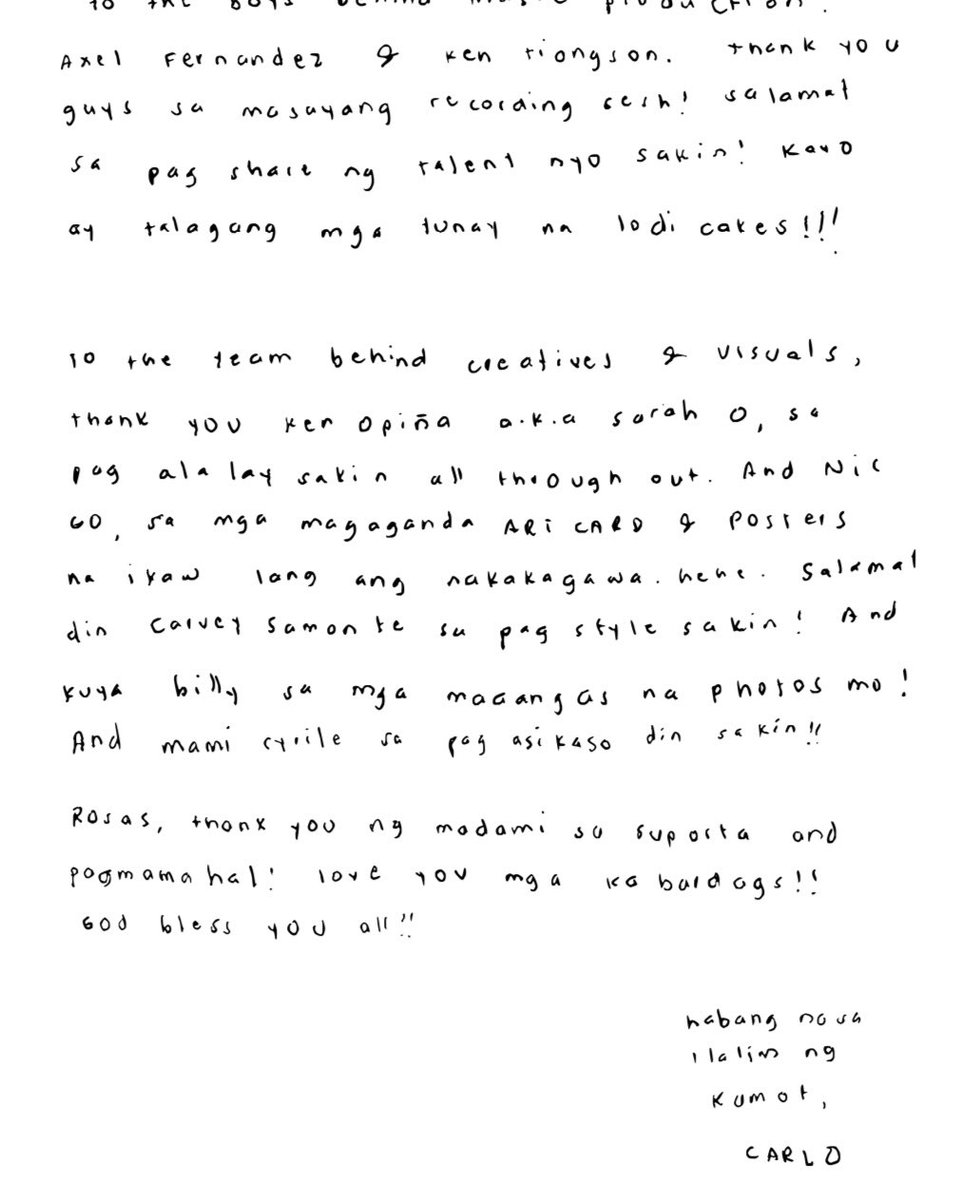 to the boys behind music production!
Axel Fernandez & Ken Tiongson. Thank you
guys sa masayang recording sesh! salamat
sa pag share ng talent nyo sakin! Kayo
ay talagang mga tunay na lodi cakes!!!
To the team behind creatives & visuals,
thank you Ken Opiña a.k.a sarah O, sa
pag ala lay sakin all through out. And Nic
Go, sa mga magaganda ARI CARD & Posters
na ikaw lang ang nakakagawa. hehe. Salamat
din Carvey Samonte sa pag style sakin! And
kuya billy sa mga maaangas na photos mo!
And mami cyrile sa pag asikaso din sakin!!
Rosas, thank you ng madami sa suporta and
pagmamahal! love you mga ka bardags!!
God bless you all!!
habang nasa
ilalim ng
kumot,
CARLO